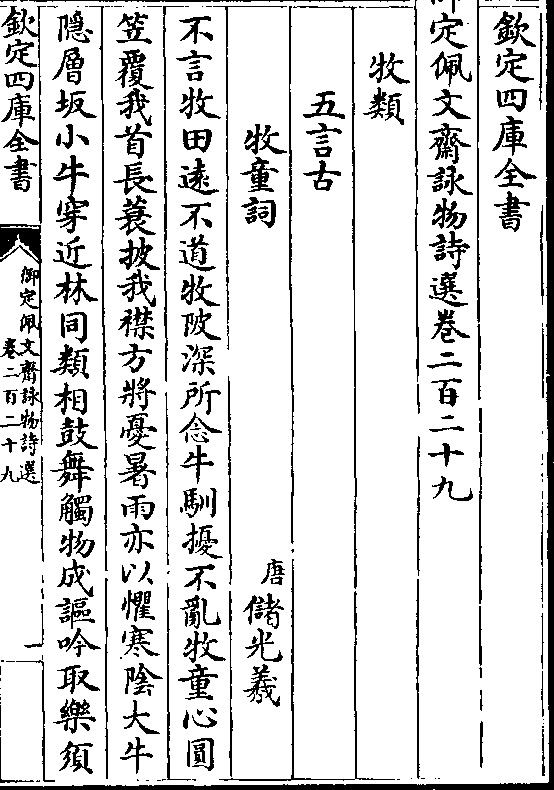 欽定四庫全書
御定佩文齋詠物詩選卷二百二十九
牧類
五言古
牧童詞 唐儲光羲
不言牧田遠不道牧陂深所念牛馴擾不亂牧童心圓
笠覆我首長蓑披我襟方將憂暑雨亦以懼寒陰大牛
隱層坂小牛穿近林同類相鼓舞觸物成謳吟取樂須
欽定四庫全書
御定佩文齋詠物詩選
卷二百二十九
一